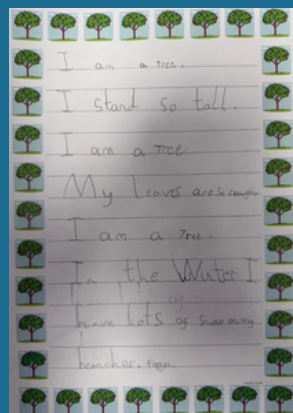 I am a Tree.
I stand so tall.
I am a Tree
My Leaves are so
I am a Tree.
In the Winter I
have Lots of Snow on my
branchas.